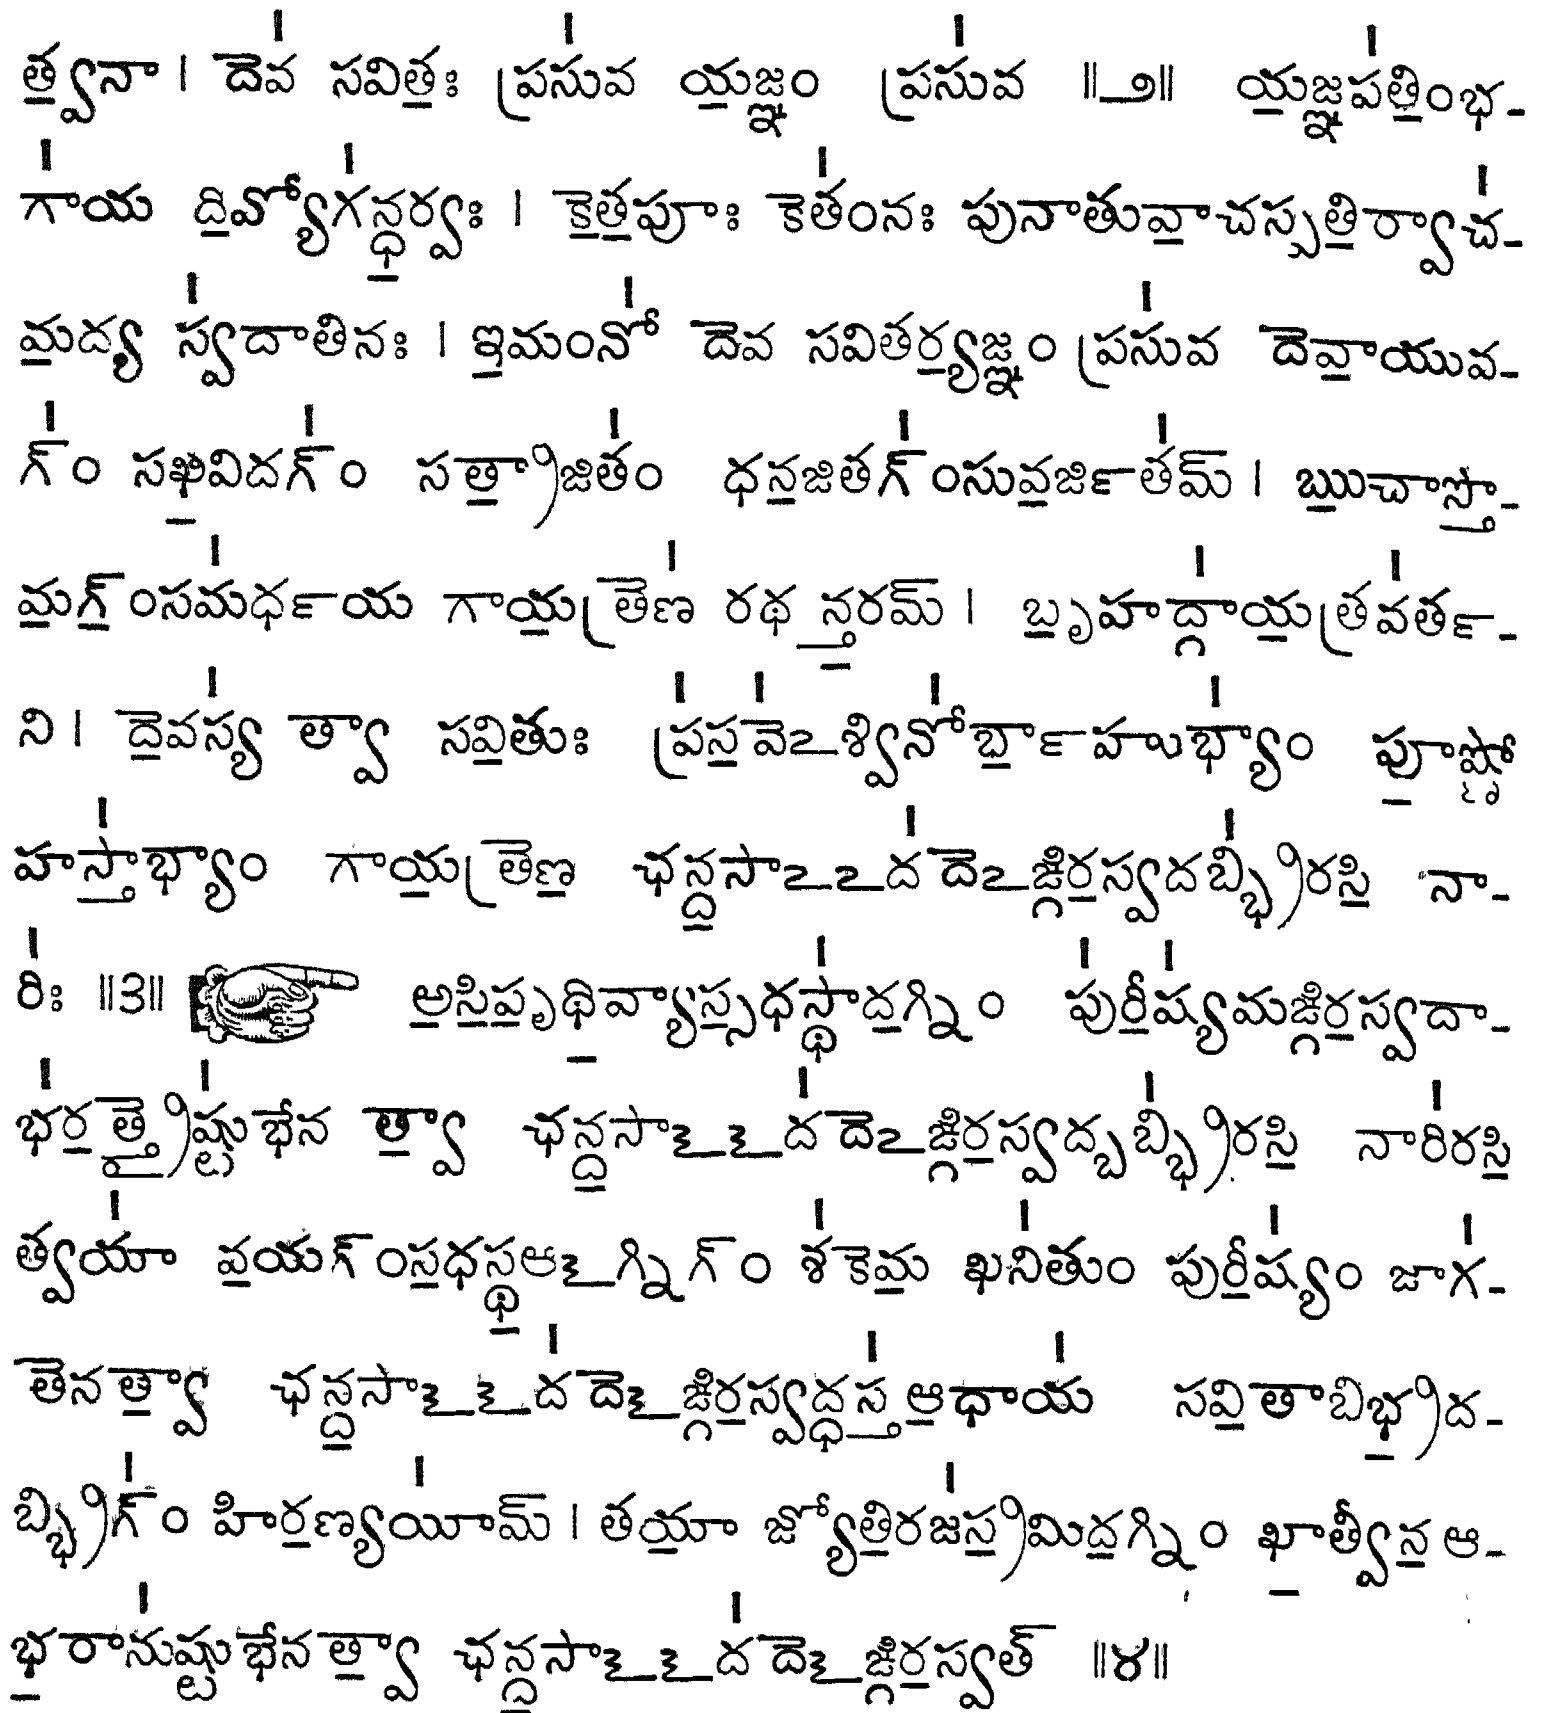 త్వ॒నా । దెవ॑ సవిత॒ః ప్రసు॑వ య॒జ్ఞం ప్రసు॑వ ॥౨॥ య॒జ్ఞప॑తి॒ంభ-
గా॑య ది॒వ్యోగ॑న్ధ॒ర్వః । కె॒త॒పూః కెత॑ంనః పునాతువా॒చస్పతి॒ర్వాచ॑-
మ॒ద్య స్వ॑దాతినః । ఇ॒మంనో॑ దెవ సవితర్య॒జ్ఞం ప్రసు॑వ దెవా॒యువ-
గ్॑ం సఖి॒విదగ్॑ం సత్రా॒జిత॑ం ధన॒జితగ్॑ంసువ॒ర్జిత॑మ్ । ఋ॒చాస్తో-
మ॒గ్॒ంసమ॑ర్ధయ గాయ॒త్రెణ॑ రథన్త॒రమ్ । బృ॒హద్గా॑య॒త్రవ॑ర్త-
ని । దె॒వస్య॑ త్వా సవి॒తుః ప్ర॑స॒వె॑ఽశ్వినో॑ర్బా॒హుభ్యా॑ం పూ॒ష్ణో
హస్తా॑భ్యాం గాయ॒త్రెణ॒ ఛన్ద॒సాఽఽద॑దెఽఙ్గిర॒స్వదబ్భ్రి॑రసి॒ నా-
రి॑ః ॥౩॥ అ॒సి॒పృ॒థి॒వ్యాస్స॒ధస్థా॑ద॒గ్నిం పు॑రీ॒ష్య॑మఙ్గిర॒స్వదా-
భ॑ర॒త్త్రైష్టు॑భేన త్వా॒ ఛన్ద॒సాఽఽద॑దెఽఙ్గిర॒స్వద్బబ్భ్రి॑రసి॒ నారి॑రసి॒
త్వయా॑ వ॒యగ్ంస॒ధస్థ॒ఆఽగ్నిగ్ం శ॑కెమ॒ ఖని॑తుం పురీ॒ష్య॑ం జాగ॑-
తెనత్వా॒ ఛన్ద॒సాఽఽద॑దెఽఙ్గిర॒స్వద్ధస్త॑ఆ॒ధాయ॑ సవి॒తాబిభ్రి॒ద-
బ్భ్రిగ్॑ం హిర॒ణ్యయీ॑మ్ । తయా॒ జ్యోతి॒రజ॑స్ర॒మిద॒గ్నిం ఖా॒త్వీన॒ ఆ-
భ॒రాను॑ష్టుభేనత్వా॒ ఛన్ద॒సాఽఽద॑దెఽఙ్గిర॒స్వత్ ॥౪॥